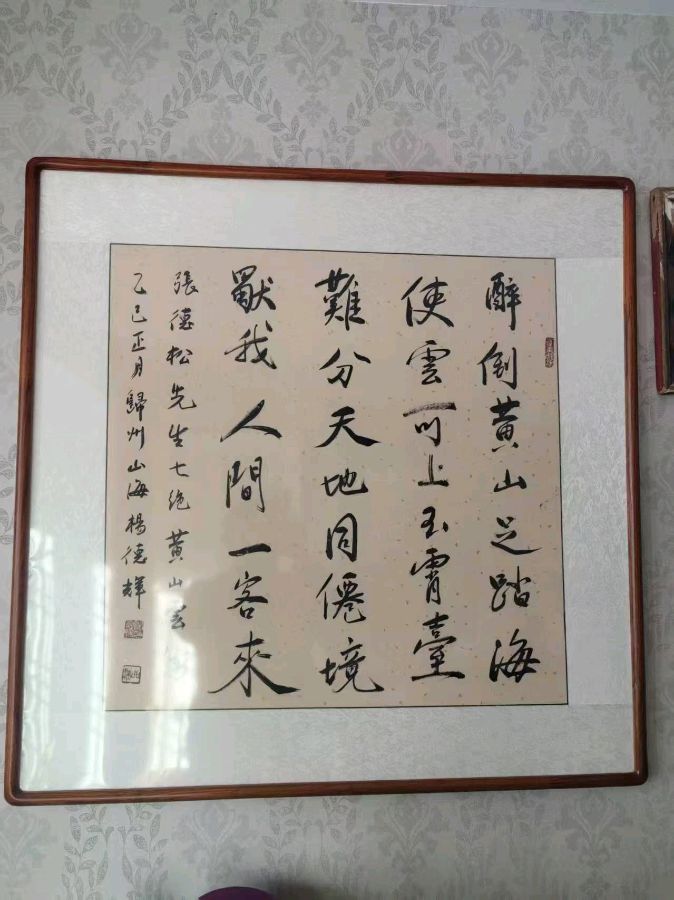 醉倒黃山足踏海
使雲可上玉霄臺
難分天地同僊境
我人間一客來
張德松先生七绝黃山
乙巳正月歸州山海楊德輝